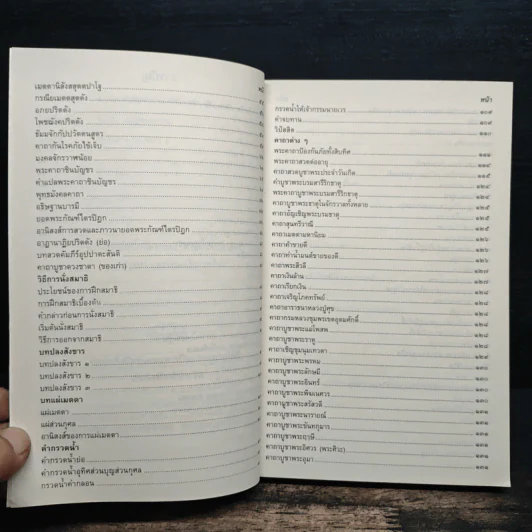 เมตตานิสังสสุตตปาโฐ
กรณียเมตตสูตตัง
อภยปริตตัง
โพชฌังคปริตตัง
ธัมมจักกัปปวัตตนสูตร
คาถากันโรคภัยไข้เจ็บ
มงคลจักรวาฬน้อย
พระคาถาชินบัญชร
คำแปลพระคาถาชินบัญชร
พุทธมังคลคาถา
อธิษฐานบารมี
ยอดพระกัณฑ์ไตรปิฎก
อานิสงส์การสวดและภาวนายอดพระกัณฑ์ไตรปิฎก
อาฏานาฏิยปริตตัง (ย่อ)
บทสวดคัมภีร์อุปปาตะสันติ
คาถาบูชาดวงชาตา (ของเก่า)
วิธีการนั่งสมาธิ
ประโยชน์ของการฝึกสมาธิ
การฝึกสมาธิเบื้องต้น
คำกล่าวก่อนการนั่งสมาธิ
เริ่มต้นนั่งสมาธิ
วิธีการออกจากสมาธิ
บทปลงสังขาร
บทปลงสังขาร ๑
บทปลงสังขาร ๒
บทปลงสังขาร ๓
บทแผ่เมตตา
แผ่เมตตา
แผ่ส่วนกุศล
อานิสงส์ของการแผ่เมตตา
คำกรวดน้ำ
คำกรวดน้ำย่อ
คำกรวดน้ำอุทิศส่วนบุญส่วนกุศล
กรวดน้ำคำกลอน
หน้า
กรวดน้ำให้เจ้ากรรมนายเวร ๑๐๙
คำจบทาน ๑๐๙
วิปัสสิต ๑๑๐
คาถาต่าง ๆ
พระคาถาป้องกันภัยทั้งสิบทิศ
พระคาถาสวดต่ออายุ
คาถาสวดบูชาพระประจำวันเกิด
คำบูชาพระบรมสารีริกธาตุ
พระคาถาบูชาพระบรมสารีริกธาตุ ๑๒๕
คาถาบูชาพระธาตุในจักรวาลทั้งหลาย ๑๒๕
คาถาอัญเชิญพระบรมธาตุ ๑๒๕
คาถาสุนทรีวาณี ๑๒๕
คาถาเมตตามหานิยม ๑๒๖
คาถาค้าขายดี ๑๒๖
คาถาทำน้ำมนต์ขายของดี ๑๒๖
คาถาพระสิวลี ๑๒๗
คาถาเงินล้าน ๑๒๗
คาถาเรียกเงิน ๑๒๘
คาถาเจริญโภคทรัพย์ ๑๒๘
คาถาอาราธนาหลวงปู่ศุข ๑๒๘
คาถากรมหลวงชุมพรเขตอุดมศักดิ์ ๑๒๘
คาถาบูชาพระแม่โพสพ ๑๒๘
คาถาบูชาพระราหู
คาถาเชิญชุมนุมเทวดา
คาถาบูชาพระพรหม ๑๒๙
คาถาบูชาพระลักษมี ๑๓๐
คาถาบูชาพระอินทร์ ๑๓๐
คาถาบูชาพระพิฆเนศวร ๑๓๐
คาถาบูชาพระสรัสวดี ๑๓๐
คาถาบูชาพระนารายณ์ ๑๓๑
คาถาบูชาพระขันทกุมาร ๑๓๑
คาถาบูชาพระฤๅษี ๑๓๑
คาถาบูชาพระอิศวร (พระศิวะ) ๑๓๑
คาถาบูชาพระอุมา ๑๓๑